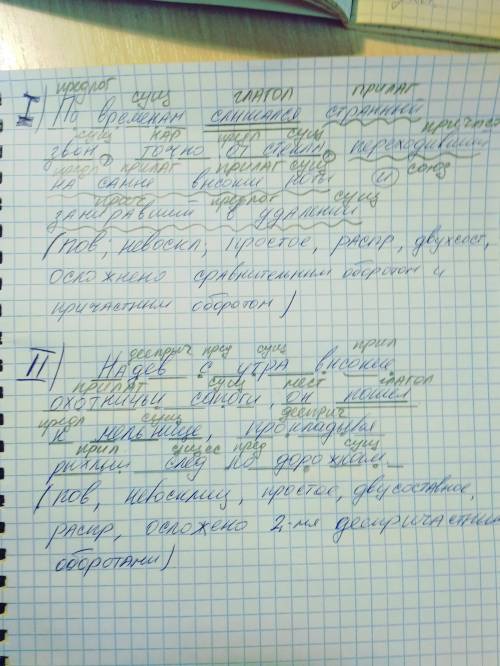 предлог сущ глагол прилаг
I) По временам слышался странный
сущ нар предл сущ причаст
звон точно от стекла, переходивший
предл прилаг прилаг сущ союз
на самые высокие ноты и
прич предлог сущ
замиравший в удалении
(пов, невоскл, простое, распр, двухсост,
осложнено сравнительным оборотом и
причастным оборотом)
дееприч пред сущ прил
II) Надев с утра высокие
прилаг сущ мест глагол
охотничьи сапоги, он пошел
предл сущ дееприч
к мельнице, прокладывая
прил сущ пред сущ
рыхлый след по дорожкам
(пов, невосклиц, простое, двусоставное,
распр, осложено 2-мя деепричастными
оборотами)